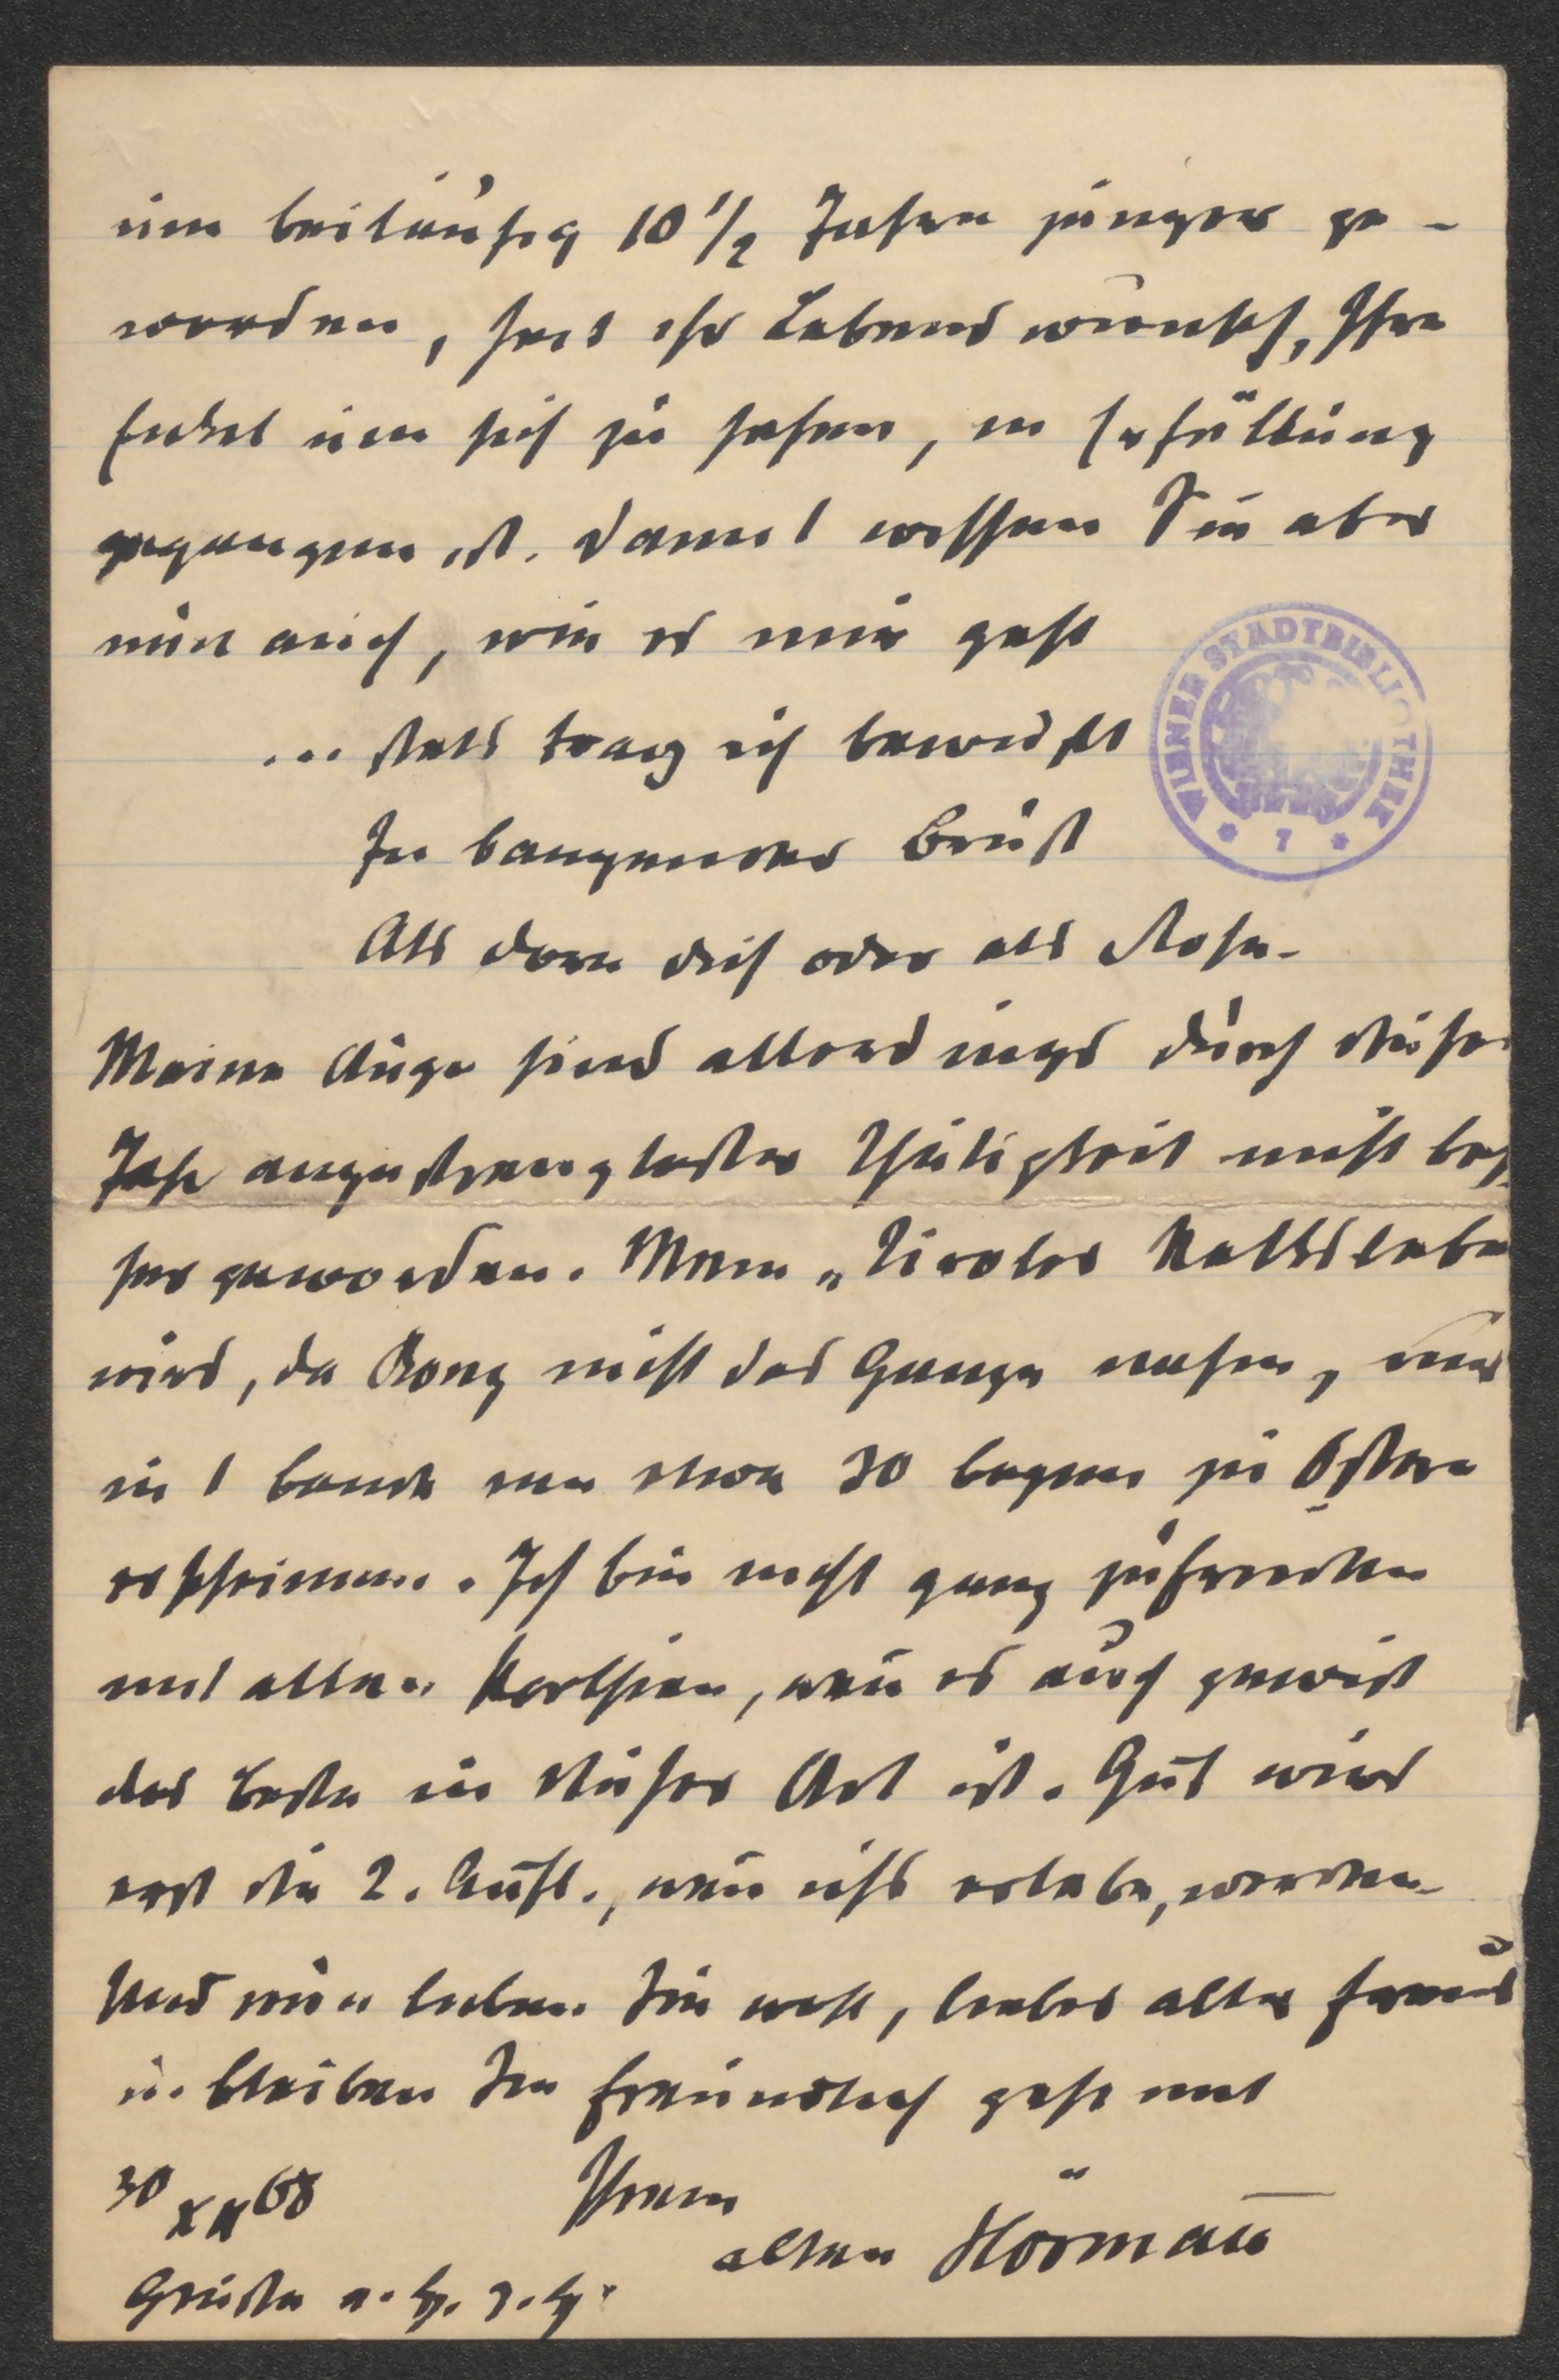 um beiläufig 10 1/2 Jahre jünger ge-
worden, seit ihr Lebenswunsch, Ihre
Enkel um sich zu sehen, in Erfüllung
gegangen ist. Damit wissen Sie aber
nun auch, wie es mir geht
... stets trag ich bewußt
In bangender Brust
Als Dorn dich oder als Rose.
Meine Auge sind allerdings durch dieses
Jahr angestrengtester Thätigkeit nicht bes-
ser geworden. Mein „Tiroler Volksleben
wird, da Bong nicht das Ganze nahm, nur
in 1 Bande von etwa 30 Bogen zu Ostern
erscheinen. Ich bin nicht ganz zufrieden
mit allen Partien, wen̄ es auch gewiß
das Beste in dieser Art ist. Gut wird
erst die 2. Aufl., wen̄ ichs erlebe, werden.
Und nun leben Sie wohl, lieber alter Freund
u. bleiben Sie freundlich gesinnt
Ihrem
30 XII 08
alten Hörman̄
Grüße v. H. z. H.
WIENER STADTBIBLIOTHEK
* 7 *